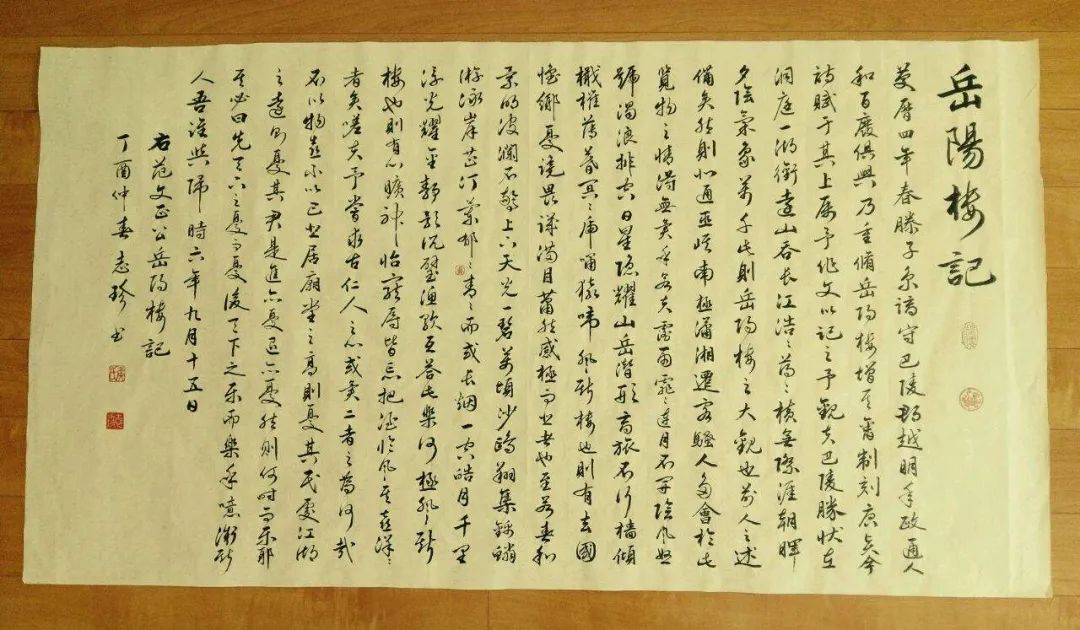 岳陽楼記
慶曆四年春滕子京謫守巴陵郡越明年政通人
和百廢俱興乃重脩岳陽樓增其舊制刻唐賢今
詩賦于其上屬予作文以記之予觀夫巴陵勝狀在
洞庭一湖銜遠山吞長江浩〻湯〻橫無際涯朝暉
夕陰氣象萬千此則岳陽樓之大觀也前人之述
備矣然則北通巫峽南極瀟湘遷客騷人多會於此
覽物之情得無異乎若夫霪雨霏〻連月不開陰風怒
號濁浪排空日星隱耀山岳潛形商旅不行檣傾
楫摧薄暮冥〻虎嘯猿啼登斯樓也則有去國
懷鄉憂讒畏譏滿目蕭然感極而悲者也至若春和
景明波瀾不驚上下天光一碧萬頃沙鷗翔集錦鱗
游泳岸芷汀蘭郁〻青〻而或長烟一空皓月千里
浮光耀金靜影沉璧漁歌互答此樂何極登斯
樓也則有心曠神怡寵辱皆忘把酒臨風其喜洋〻
者矣嗟夫予嘗求古仁人之心或異二者之為何哉
不以物喜不以己悲居廟堂之高則憂其民處江湖
之遠則憂其君是進亦憂退亦憂然則何時而樂耶
其必曰先天下之憂而憂後天下之樂而樂乎噫微斯
人吾誰與歸時六年九月十五日
右范文正公岳陽樓記
丁酉仲春志珍書